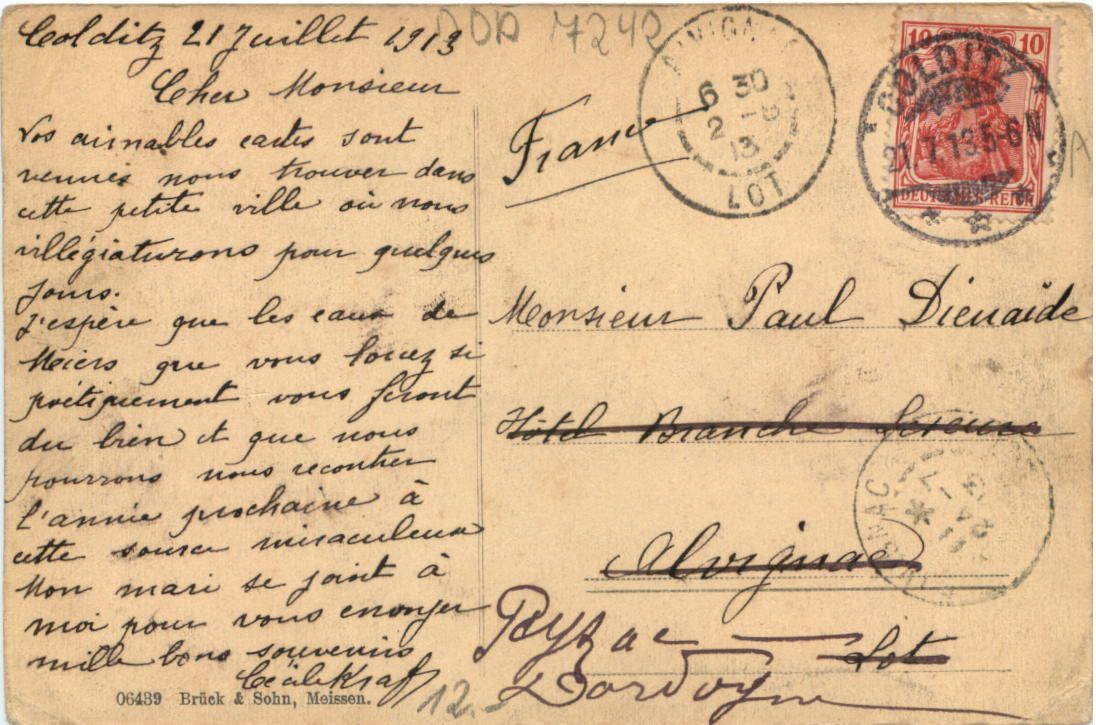 Colditz 21 Juillet 1913
Cher Monsieur
Vos aimables cartes sont
venues nous trouver dans
cette petite ville où nous
villégiaturons pour quelques
jours.
J'espère que les eaux de
Miers que vous louez si
poétiquement vous feront
du bien et que nous
pourrons nous recontrer
l'année prochaine à
cette source miraculeuse
Mon mari se joint à
moi pour vous envoyer
mille bons souvenirs
Cécile Kraft
06439 Brück & Sohn, Meissen.
12.-
DDA 7242
France
ALVIGNAC
6 30
2 -8
13
LOT
10 10
DEUTSCHES REICH
COLDITZ
21.7.13.5-6N
Monsieur Paul Dieuaïde
Hôtel Branche
Alvignac
Lot
Payzac
Dordogne